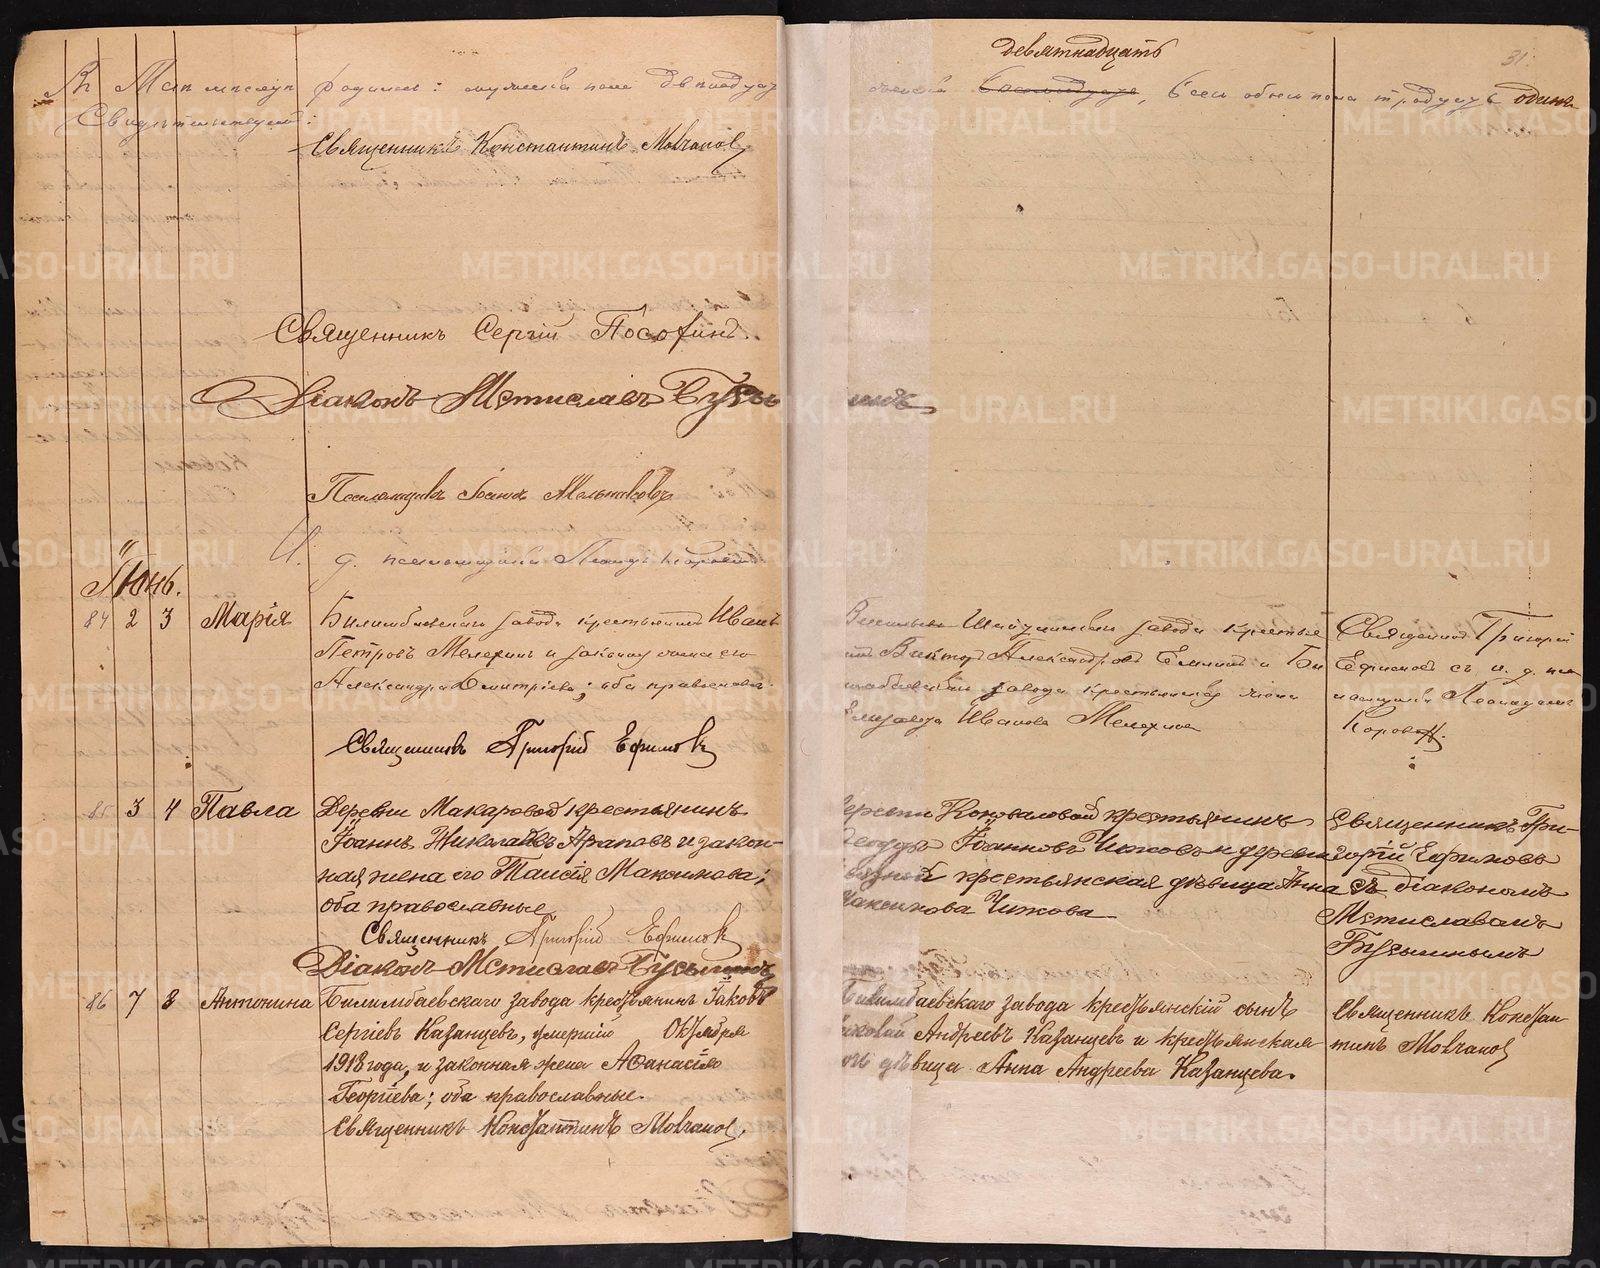 девятнадцать
31.
родились: мужеска пола двенадцать
женска, всего обоего пола тридцать один
Свидетельствуем:
Священникъ Константинъ Молчановъ
Священникъ Сергій
Діаконъ Мстиславъ Бусы
гинъ
Псаломщикъ Іоаннъ Мельниковъ
И. д. псаломщика
Іюнь.
84 2 3 Марія
Билимбаевскаго завода крестьянинъ Иванъ
Петровъ Мелехинъ и законная жена его
Александра Димитріева; оба православные.
Священникъ Григорій Ефимовъ
Васильево-Шайтанскаго завода крестья
Викторъ Александровъ и Би
завода крестьянская жена
Елизавета Иванова Мелехина
Священникъ Григорій
Ефимовъ съ и. д. пса
ломщика Леонидомъ
85 3 4 Павла
Деревни Макаровой крестьянинъ
Іоаннъ Николаевъ Араповъ и закон-
ная жена его Таисія Максимова;
оба православные
Священникъ Григорій Ефимовъ
Діаконъ Мстиславъ Бусыгинъ
деревни Коноваловой крестьянинъ
Іоанновъ Чижовъ и деревни
крестьянская дѣвица Анна
Максимова Чижова
Священникъ Гри-
горій Ефимовъ
съ діакономъ
Мстиславомъ
Бусыгинымъ
86 7 8 Антонина
Билимбаевскаго завода крестьянинъ Іаковъ
Сергіевъ Казанцевъ, умершій Октября
1918 года, и законная жена Афанасія
Георгіева; оба православные.
Священникъ Константинъ Молчановъ.
Билимбаевскаго завода крестьянскій сынъ
Андреевъ Казанцевъ и крестьянская
дѣвица Анна Андреева Казанцева.
Священникъ Констан-
тинъ Молчановъ
METRIKI.GASO-URAL.RU